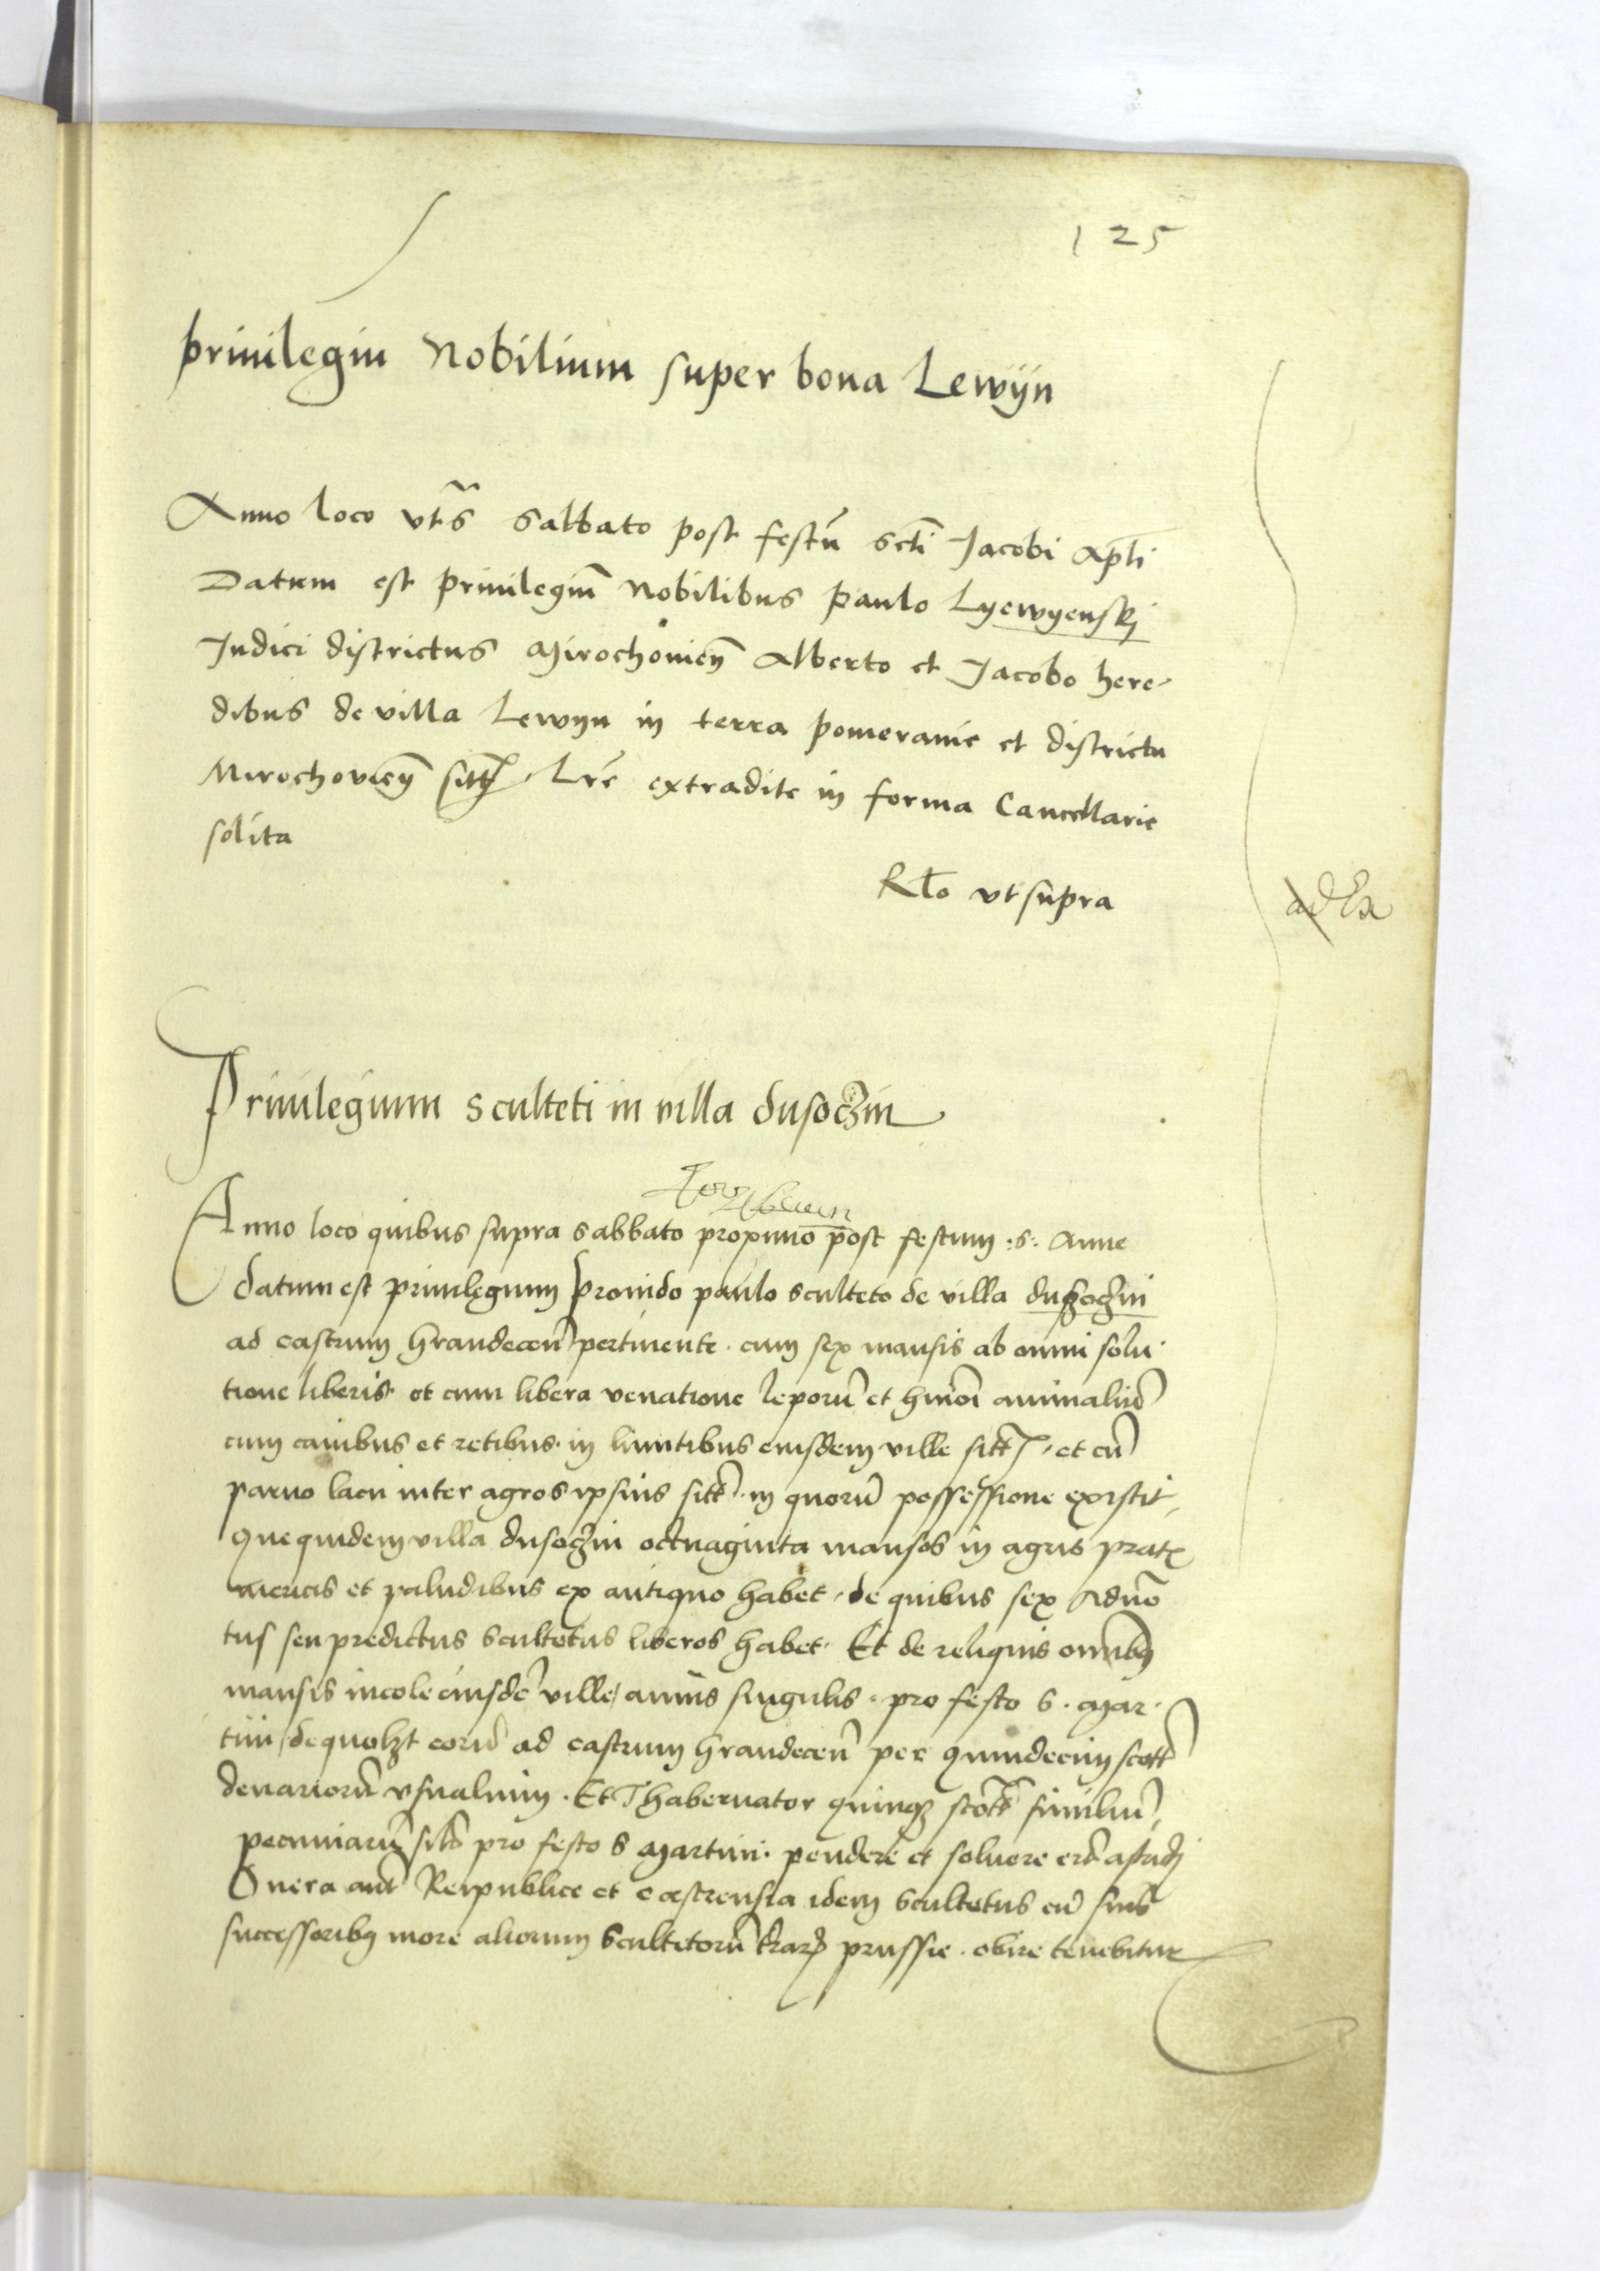 125
privilegiu Nobilium super bona Lewyn
Anno loco vts sabbato post festū scti Jacobi apli
Datum est privilegiū Nobilibus paulo Lyewyenskj
Judici districtus Mirochovieñ Alberto et Jacobo here-
dibus de villa Lewyn in terra pomeranie et districtu
Mirochovieñ sitt. Lre extradite in forma Cancellarie
solita
Rlo vt supra
Privilegium sculteti in villa dusoczin
Anno loco quibus supra sabbato proximo post festum .s. Anne
datum est privilegium provido paulo sculteto de villa dusoczin
ad castrum Grandeceñ pertinente . cum sex mansis ab omni solu-
tione liberis et cum libera venatione leporū et hmōi animaliū
cum canibus et retibus in limitibus eiusdem ville sitt . et cū
parvo lacu inter agros ipsius sitt in quorū possessione existit,
que quidem villa dusoczin octuaginta mansos in agris prat
mericis et paludibus ex antiquo habet . de quibus sex advo
tus seu predictus scultetus liberos habet . Et de reliquis omnibꝫ
mansis incole eiusdē ville annis singulis . pro festo S . Mar-
tini / de quolzt eorū ad castrum Grandeceñ per quindecim scott
denariorū usualium . Et Thabernator quinqꝫ scott similiū
pecuniarū silr pro festo S Martini . pendere et solvere erūt astricti
Onera aut Reipublice et castrensia idem scultetus cū suis
successoribꝫ more aliorum scultetorū terarꝫ prussie . obire tenebitur